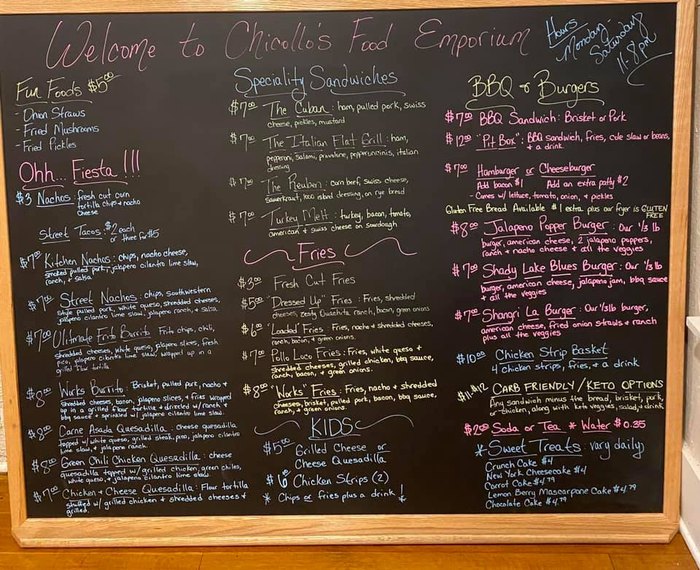 Welcome to Chicollo's Food Emporium
Hours
Monday-
Saturday
11-8pm
Fun Foods $5.00
- Onion Straws
- Fried Mushrooms
- Fried Pickles
Ohh... Fiesta !!!
$3 Nachos: fresh cut corn
tortilla chips + nacho
cheese
Street Tacos $2 each
or three for $5
$7.00 Kitchen Nachos: chips, nacho cheese,
smoked pulled pork, jalapeno cilantro lime slaw,
ranch, + salsa
$7.00 Street Nachos: chips, southwestern
style pulled pork, white queso, shredded cheeses,
jalapeno cilantro lime slaw, jalapeno ranch, + salsa
$7.00 Ultimate Frito Burrito: Frito chips, chili,
shredded cheeses, white queso, jalapeno slices, fresh
pico, jalapeno cilantro lime slaw, wrapped up in a
grilled flour tortilla
$8.00 Works Burrito: Brisket, pulled pork, nacho +
shredded cheeses, bacon, jalapeno slices, + fries wrapped
up in a grilled flour tortilla + drizzled w/ ranch +
bbq sauce + sprinkled w/ jalapeno cilantro lime slaw.
$8.00 Carne Asada Quesadilla: cheese quesadilla
topped w/ white queso, grilled steak, pico, jalapeno cilantro
lime slaw, + jalapeno ranch.
$8.00 Green Chili Chicken Quesadilla: cheese
quesadilla topped w/ grilled chicken, green chiles,
white queso, + jalapeno cilantro lime slaw
$7.00 Chicken + Cheese Quesadilla: Flour tortilla
stuffed w/ grilled chicken + shredded cheeses +
grilled.
Speciality Sandwiches
$7.00 The Cuban: ham, pulled pork, swiss
cheese, pickles, mustard
$7.00 The Italian Flat Grill: ham,
pepperoni, salami, provolone, pepperoncinis, italian
dressing
$7.00 The Reuban: corn beef, swiss cheese,
sauerkraut, 1000 island dressing, on rye bread
$7.00 Turkey Melt: turkey, bacon, tomato,
american + swiss cheese on sourdough
Fries
$3.00 Fresh Cut Fries
$5.00 "Dressed Up" Fries: Fries, shredded
cheeses, zesty Ouachita ranch, bacon, green onions
$6.00 "Loaded" Fries: Fries, nacho + shredded cheeses,
ranch, bacon, + green onions.
$7.00 Pollo Loco Fries: Fries, white queso +
shredded cheeses, grilled chicken, bbq sauce,
ranch, bacon, + green onions.
$8.00 "Works" Fries: Fries, nacho + shredded
cheeses, brisket, pulled pork, bacon, bbq sauce,
ranch, + green onions.
KIDS
$5.00 Grilled Cheese or
Cheese Quesadilla
$6.00 Chicken Strips (2)
* Chips or fries plus a drink! *
BBQ + Burgers
$7.00 BBQ Sandwich: Brisket or Pork
$12.00 "Pit Box": BBQ sandwich, fries, cole slaw or beans,
+ a drink
$7.00 Hamburger or Cheeseburger
Add bacon $1 Add an extra patty $2
- Comes w/ lettuce, tomato, onion, + pickles
Gluten Free Bread Available $1 extra plus our fryer is GLUTEN
FREE
$8.00 Jalapeno Popper Burger: Our 1/3 lb
burger, american cheese, 2 jalapeno poppers,
ranch + nacho cheese + all the veggies
$7.00 Shady Lake Blues Burger: Our 1/3 lb
burger, american cheese, jalapeno jam, bbq sauce
+ all the veggies
$7.00 Shangri La Burger: Our 1/3 lb burger,
american cheese, fried onion straws + ranch
plus all the veggies
$10.00 Chicken Strip Basket
4 chicken strips, fries, + a drink
$11-$12 CARB FRIENDLY/KETO OPTIONS
Any sandwich minus the bread, brisket, pork,
or chicken, along with keto veggies, salad + drink
$2.00 Soda or Tea * Water $0.35
* Sweet Treats: vary daily
Crunch Cake $4
New York Cheesecake $4
Carrot Cake $4.79
Lemon Berry Mascarpone Cake $4.79
Chocolate Cake $4.79